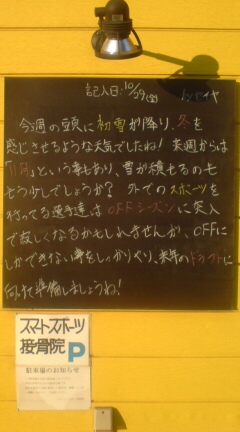 記入日:10/29(金) by ダイヤ
今週の頭に初雪が降り、冬を
感じさせるような天気でしたね! 来週からは
「11月」という事もあり、雪が積もるのも
もう少しでしょうか? 外でのスポーツを
行ってる選手達はOFFシーズンに突入
で寂しくなるかもしれませんが、OFFに
しかできない事をしっかりやり、来年のドラフトに
向けた準備しましょうね!
スマートスポーツ
接骨院 P
駐車場のお知らせ